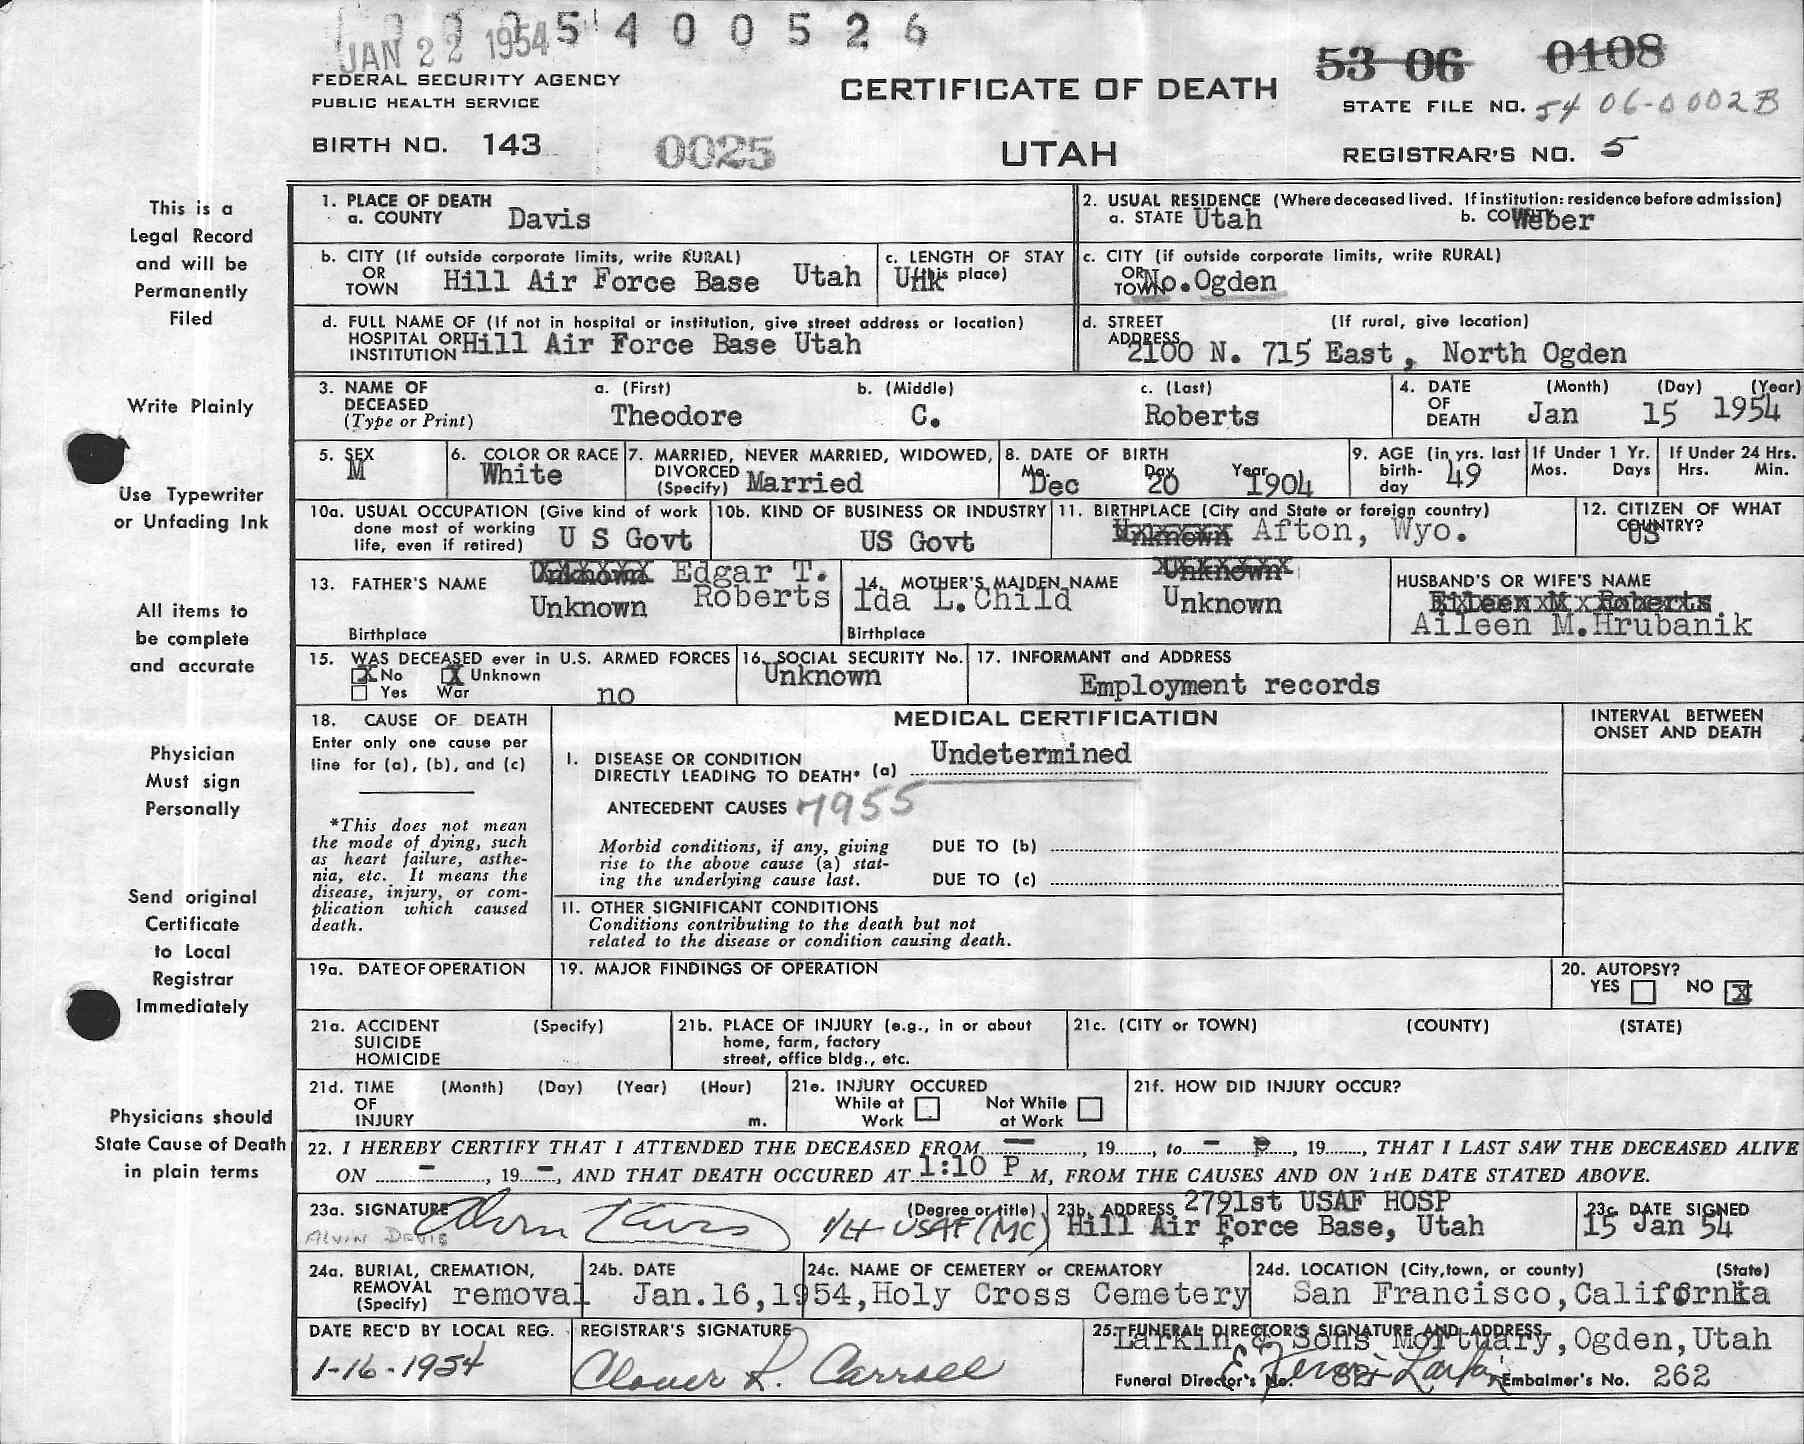 5400526
JAN 22 1954
FEDERAL SECURITY AGENCY
PUBLIC HEALTH SERVICE
BIRTH NO. 143
0025
CERTIFICATE OF DEATH
UTAH
53 06 0108
STATE FILE NO. 54 06-0002B
REGISTRAR'S NO. 5
This is a
Legal Record
and will be
Permanently
Filed
Write Plainly
Use Typewriter
or Unfading Ink
All items to
be complete
and accurate
Physician
Must sign
Personally
Send original
Certificate
to Local
Registrar
Immediately
Physicians should
State Cause of Death
in plain terms
1. PLACE OF DEATH
a. COUNTY Davis
2. USUAL RESIDENCE (Where deceased lived. If institution: residence before admission)
a. STATE Utah b. COUNTY Weber
b. CITY (If outside corporate limits, write RURAL)
OR
TOWN Hill Air Force Base Utah
c. LENGTH OF STAY
(this place) Unk
c. CITY (if outside corporate limits, write RURAL)
OR
TOWN No.Ogden
d. FULL NAME OF (If not in hospital or institution, give street address or location)
HOSPITAL OR
INSTITUTION Hill Air Force Base Utah
d. STREET (If rural, give location)
ADDRESS 2100 N. 715 East, North Ogden
3. NAME OF
DECEASED
(Type or Print)
a. (First) b. (Middle) c. (Last)
Theodore C. Roberts
4. DATE
OF
DEATH
(Month) (Day) (Year)
Jan 15 1954
5. SEX
M
6. COLOR OR RACE
White
7. MARRIED, NEVER MARRIED, WIDOWED,
DIVORCED
(Specify) Married
8. DATE OF BIRTH
Mo. Day Year
Dec 20 1904
9. AGE (in yrs. last
birth-
day 49
If Under 1 Yr.
Mos. Days
If Under 24 Hrs.
Hrs. Min.
10a. USUAL OCCUPATION (Give kind of work
done most of working
life, even if retired) U S Govt
10b. KIND OF BUSINESS OR INDUSTRY
US Govt
11. BIRTHPLACE (City and State or foreign country)
Unknown Afton, Wyo.
12. CITIZEN OF WHAT
COUNTRY?
US
13. FATHER'S NAME Unknown Edgar T.
Roberts
Unknown
Birthplace
14. MOTHER'S MAIDEN NAME Unknown
Ida L.Child Unknown
Birthplace
HUSBAND'S OR WIFE'S NAME
Eileen M Roberts
Aileen M.Hrubanik
15. WAS DECEASED ever in U.S. ARMED FORCES
X No X Unknown
Yes War no
16. SOCIAL SECURITY No.
Unknown
17. INFORMANT and ADDRESS
Employment records
18. CAUSE OF DEATH
Enter only one cause per
line for (a), (b), and (c)
*This does not mean
the mode of dying, such
as heart failure, asthe-
nia, etc. It means the
disease, injury, or com-
plication which caused
death.
MEDICAL CERTIFICATION
INTERVAL BETWEEN
ONSET AND DEATH
I. DISEASE OR CONDITION
DIRECTLY LEADING TO DEATH* (a) Undetermined
ANTECEDENT CAUSES 7955
Morbid conditions, if any, giving
rise to the above cause (a) stat-
ing the underlying cause last.
DUE TO (b)
DUE TO (c)
II. OTHER SIGNIFICANT CONDITIONS
Conditions contributing to the death but not
related to the disease or condition causing death.
19a. DATE OF OPERATION
19. MAJOR FINDINGS OF OPERATION
20. AUTOPSY?
YES NO X
21a. ACCIDENT (Specify)
SUICIDE
HOMICIDE
21b. PLACE OF INJURY (e.g., in or about
home, farm, factory
street, office bldg., etc.
21c. (CITY or TOWN) (COUNTY) (STATE)
21d. TIME (Month) (Day) (Year) (Hour)
OF
INJURY m.
21e. INJURY OCCURED
While at Not While
Work at Work
21f. HOW DID INJURY OCCUR?
22. I HEREBY CERTIFY THAT I ATTENDED THE DECEASED FROM - , 19 , to - P , 19 , THAT I LAST SAW THE DECEASED ALIVE
ON - , 19 - , AND THAT DEATH OCCURED AT 1:10 P M, FROM THE CAUSES AND ON THE DATE STATED ABOVE.
23a. SIGNATURE (Degree or title)
ALVIN DAVIS 1/Lt USAF (MC)
23b. ADDRESS 2791st USAF HOSP
Hill Air Force Base, Utah
23c. DATE SIGNED
15 Jan 54
24a. BURIAL, CREMATION,
REMOVAL
(Specify) removal
24b. DATE
Jan.16,1954,
24c. NAME OF CEMETERY or CREMATORY
Holy Cross Cemetery
24d. LOCATION (City, town, or county) (State)
San Francisco, California
DATE REC'D BY LOCAL REG.
1-16-1954
REGISTRAR'S SIGNATURE
Clover L. Carroll
25. FUNERAL DIRECTOR'S SIGNATURE AND ADDRESS
Larkin & Sons Mortuary, Ogden, Utah
Funeral Director's No. Embalmer's No. 262